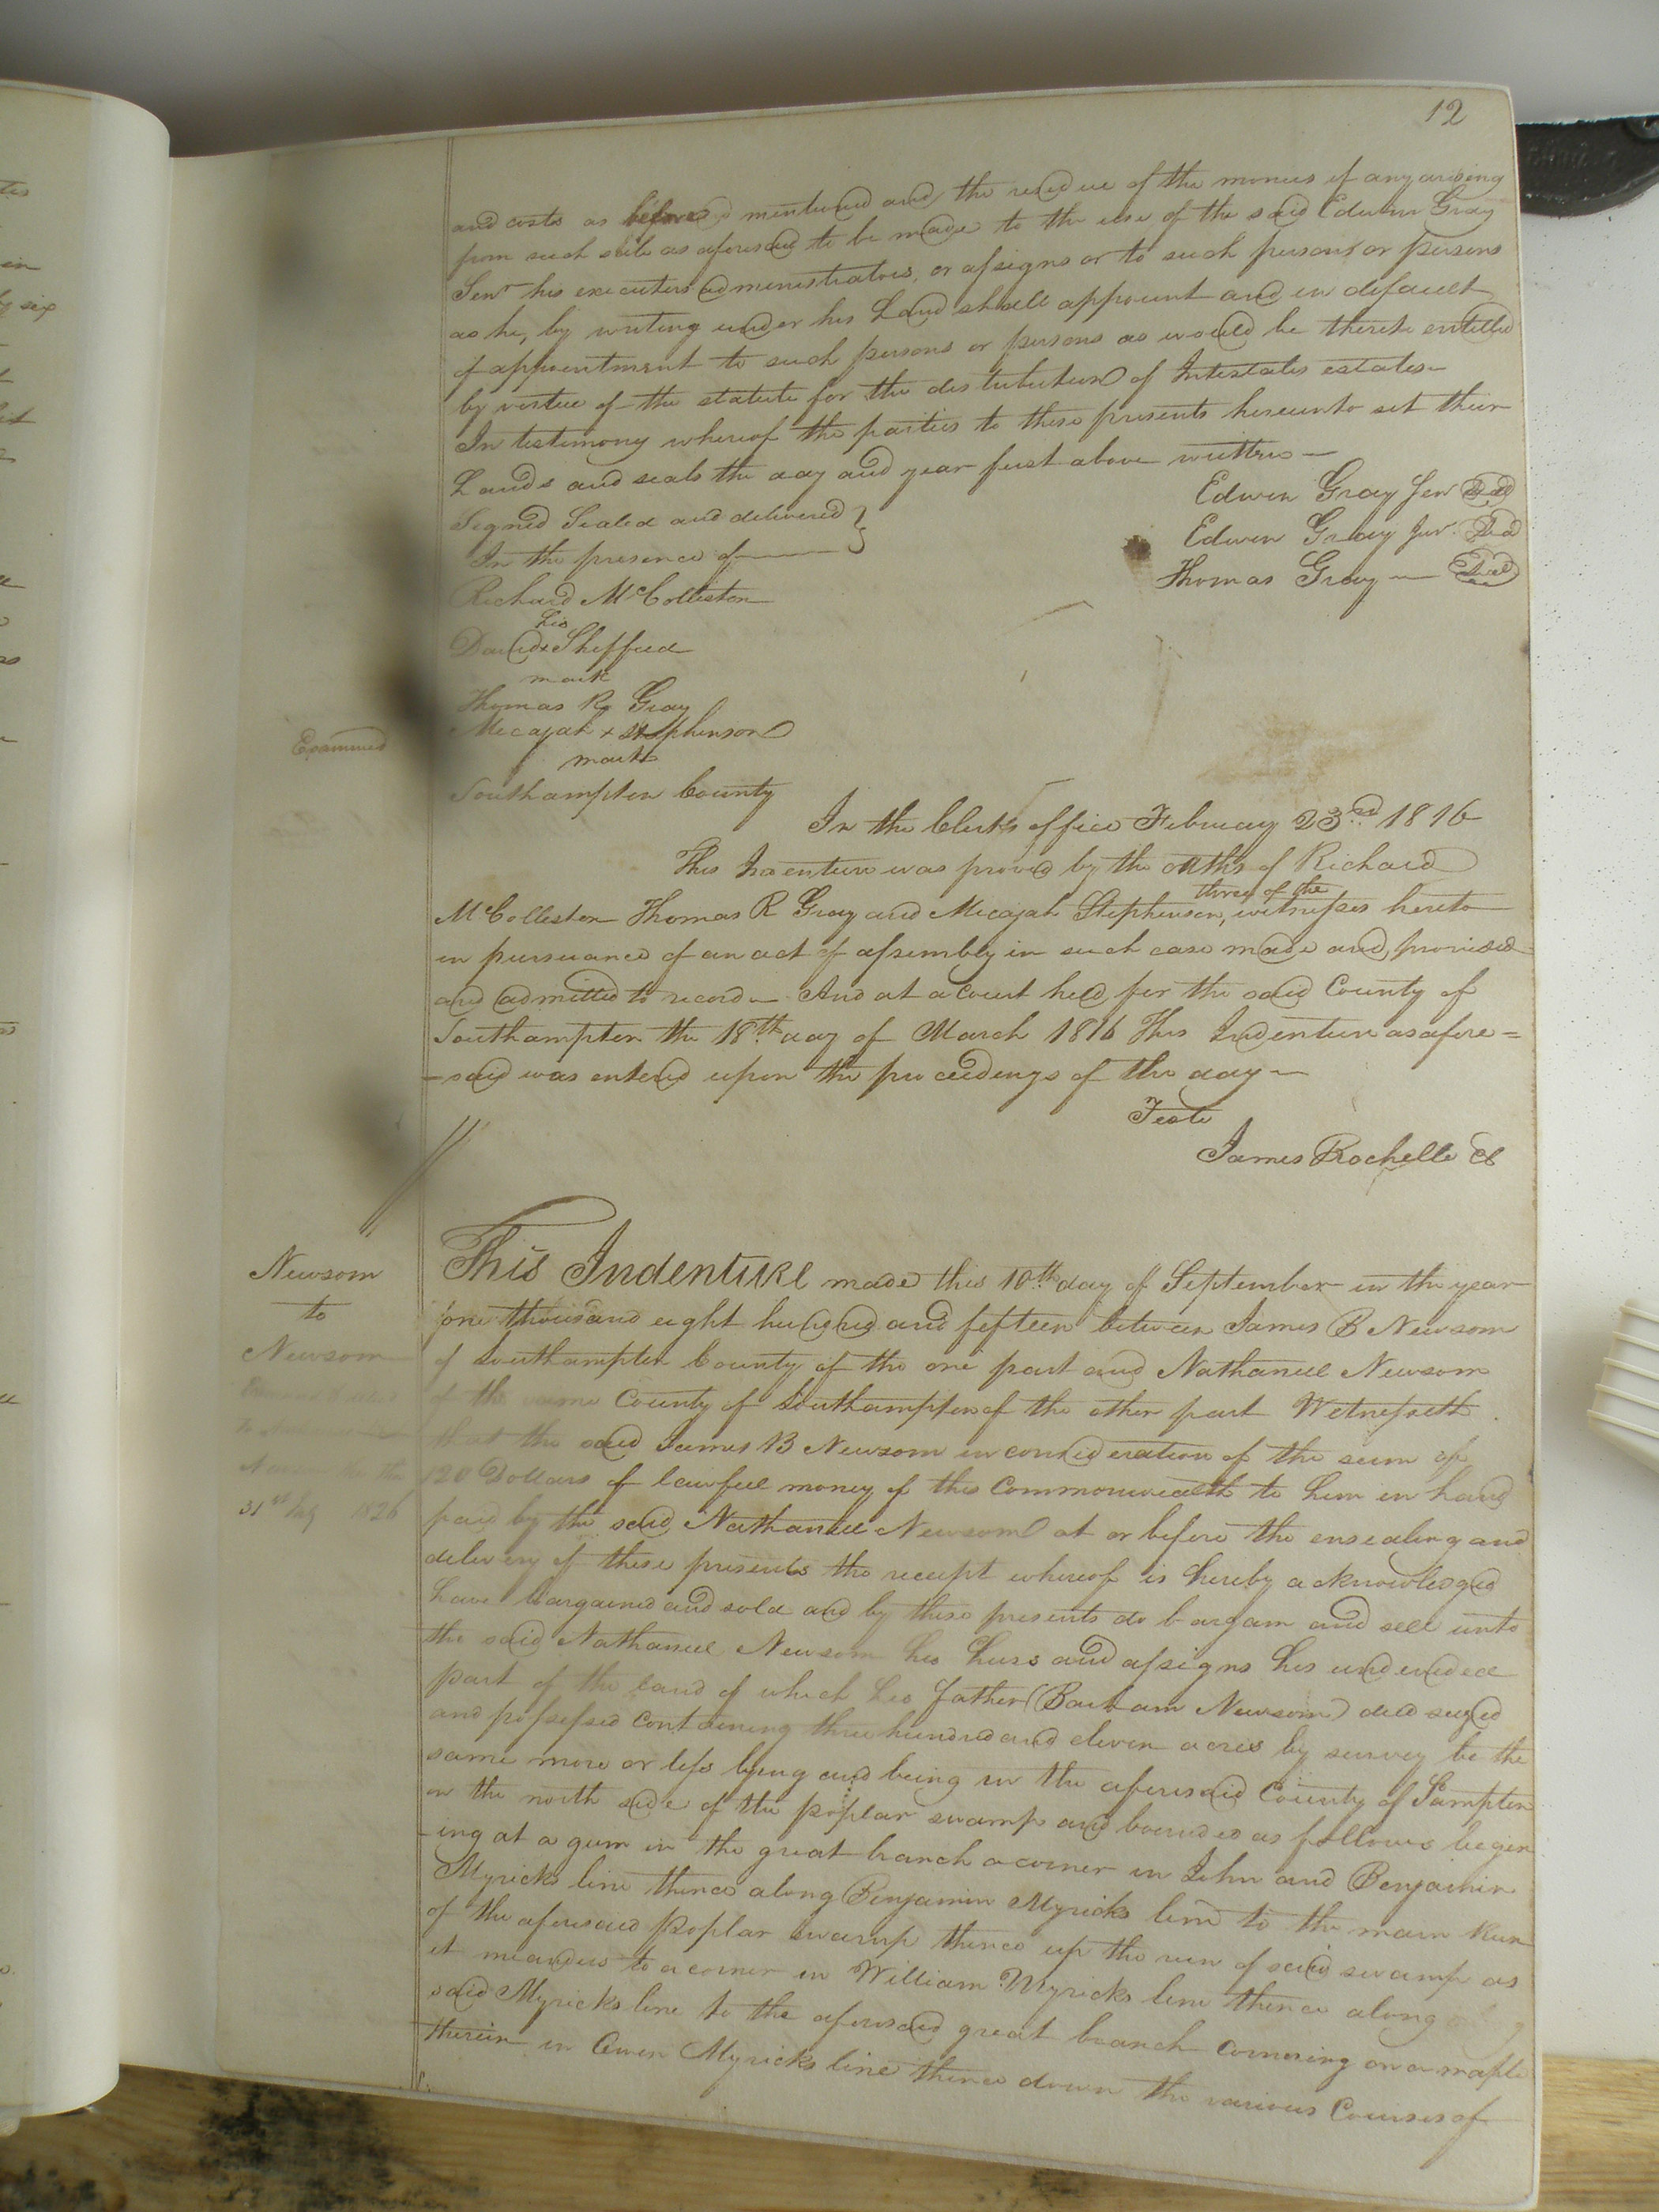 12
and costs as before mentioned and the residue of the monies if any arising
from such sale as aforesaid to be made to the use of the said Edwin Gray
Senr his executors administrators, or assigns or to such persons or persons
as he, by writing under his hand shall appoint and in default
of appointment to such persons or persons as would be thereto entitled
by virtue of the statute for the distribution of Intestates estates
In testimony whereof the parties to these presents hereunto set their
hands and seals the day and year first above written
Edwin Gray Senr Seal
Signed Sealed and delivered }
Edwin Gray Junr. Seal
In the presence of
Thomas Gray Seal
Richard McColleston
his
David x Shefford
mark
Thomas R Gray
Micajah x Stephenson
mark
Examined
Southampton County
In the Clerks office February 23rd 1816
This Indenture was proved by the oaths of Richard
three of the
McColleston Thomas R Gray and Micajah Stephenson, witnesses hereto
in pursuance of an act of assembly in such case made and provided
and admitted to record And at a Court held for the said County of
Southampton the 18th day of March 1816 This Indenture as afore=
-said was entered upon the proceedings of the day
Teste
James Rochelle Cl
Newsom
to
Newsom
31st 1826
This Indenture made this 10th day of September in the year
one thousand eight hundred and fifteen between James B Newsom
of Southampton County of the one part and Nathaniel Newsom
of the same County of Southampton of the other part Witnesseth
that the said James B Newsom in consideration of the sum of
120 Dollars of lawfull money of this Commonwealth to him in hand
paid by the said Nathaniel Newsom at or before the ensealing and
delivery of these presents the receipt whereof is hereby acknowledged
have bargained and sold and by these presents do bargain and sell unto
the said Nathaniel Newsom his heirs and assigns his undivided
part of the land of which his father (Barham Newsom) died seized
and possessed containing three hundred and eleven acres by survey be the
same more or less lying and being in the aforesaid County of Sampton
on the north side of the poplar swamp and bounded as follows begin
-ing at a gum in the great branch a corner in John and Benjamin
Myricks line thence along Benjamin Myricks line to the main Run
of the aforesaid poplar swamp thence up the run of said swamp as
it meanders to a corner in William Myricks line thence along
said Myricks line to the aforesaid great branch cornering on a maple
therein in Owen Myricks line thence down the various Courses of